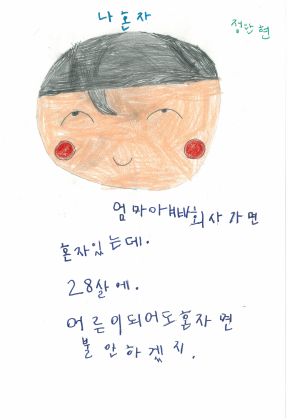 나혼자
정단현
엄마아빠회사가면
혼자있는데.
28살에.
어른이되어도혼자면
불안하겠지.